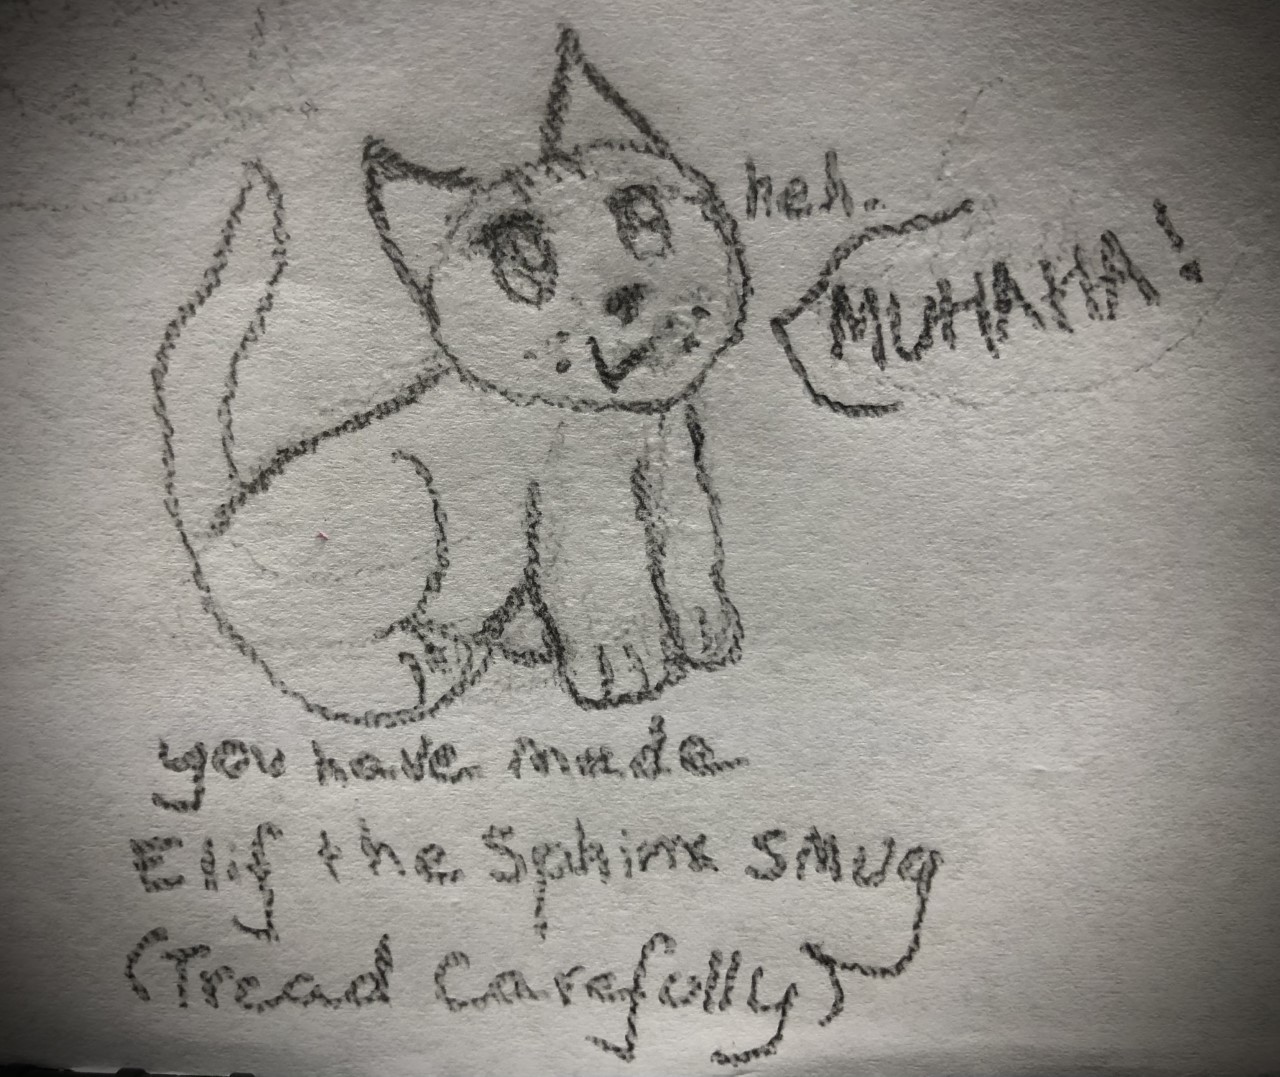 heh.
MUHAHA!
you have made
Elif the Sphinx smug
(Tread Carefully)